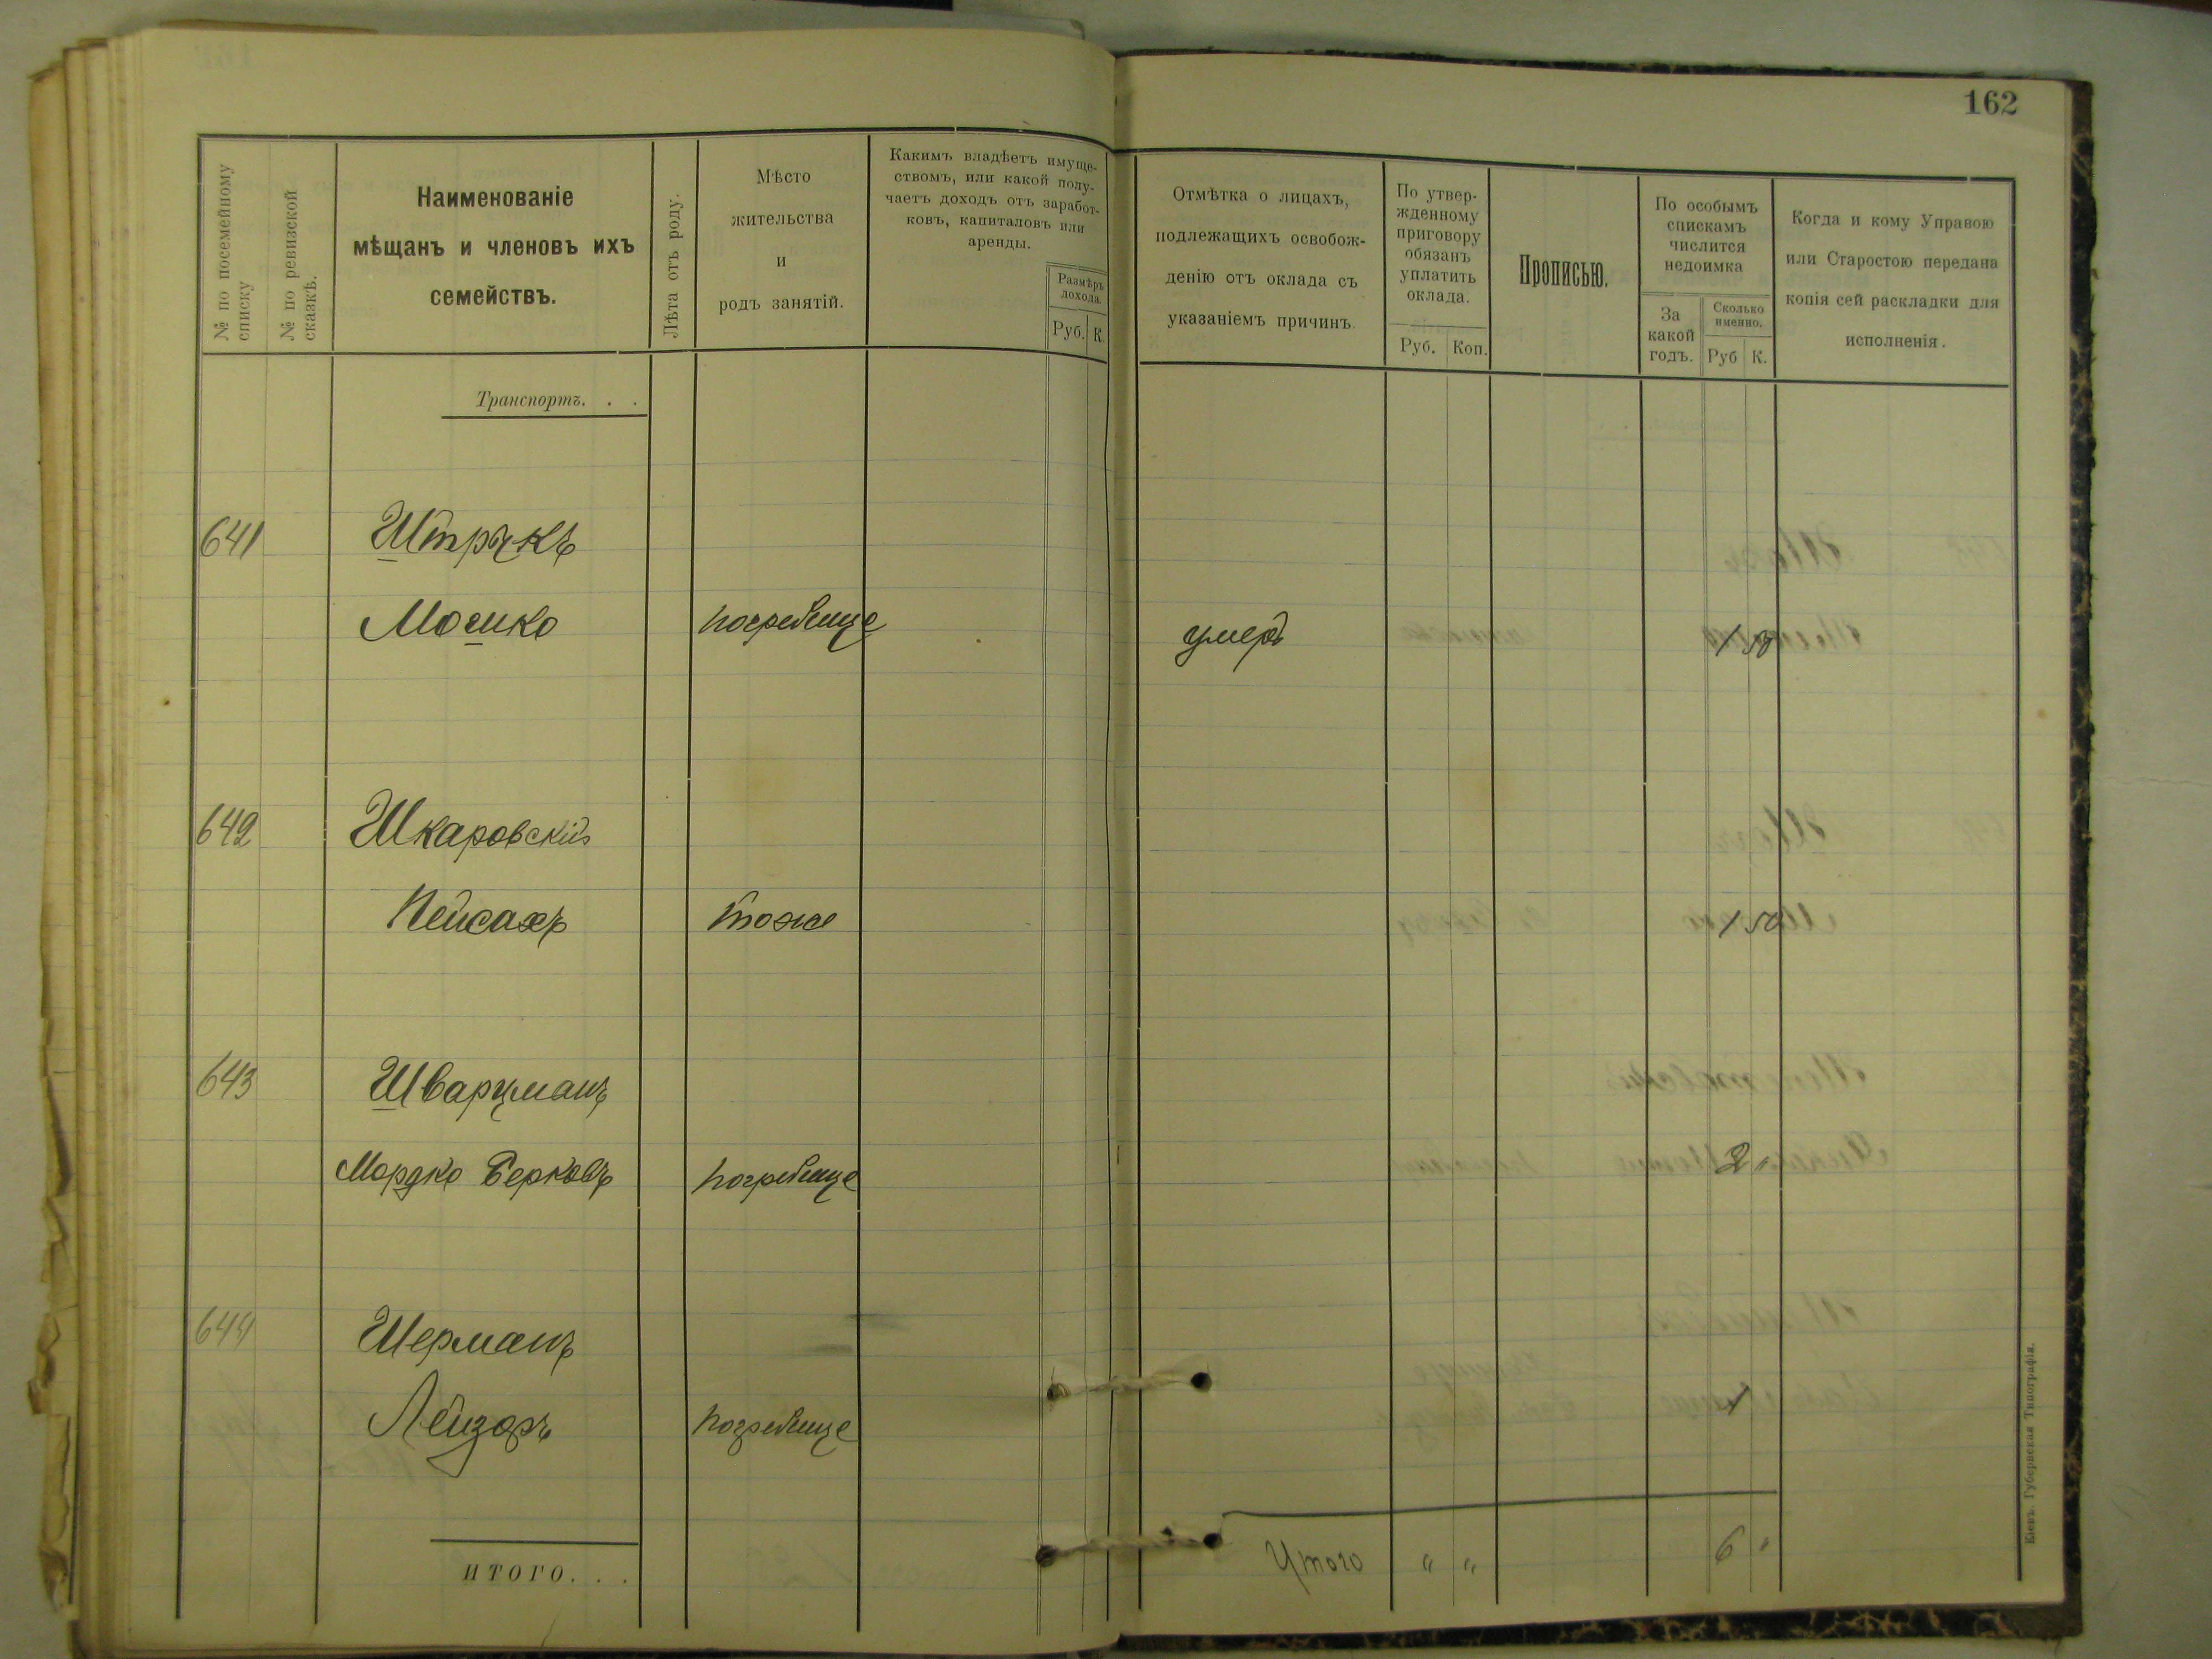 162
№ по посемейному
списку
№ по ревизской
сказкѣ.
Наименованіе
мѣщанъ и членовъ ихъ
семействъ.
Лѣта отъ роду.
Мѣсто
жительства
и
родъ занятій.
Какимъ владѣетъ имуще-
ствомъ, или какой полу-
чаетъ доходъ отъ заработ-
ковъ, капиталовъ или
аренды.
Размѣръ
дохода.
Руб. К.
Отмѣтка о лицахъ,
подлежащихъ освобож-
денію отъ оклада съ
указаніемъ причинъ.
По утвер-
жденному
приговору
обязанъ
уплатить
оклада.
Руб. Коп.
Прописью.
По особымъ
спискамъ
числится
недоимка
За
какой
годъ.
Сколько
именно.
Руб К.
Когда и кому Управою
или Старостою передана
копія сей раскладки для
исполненія.
Транспортъ. . .
641 Штрукъ
Мошко погребище умеръ 1 50
642 Шкаровскій
Пейсахъ тоже 1 50
643 Шварцманъ
Мордко Берковъ погребище 2 "
644 Шерманъ
Лейзоръ погребище 1
ИТОГО. . .
Итого " " 6 "
Кіевъ. Губернская Типографія.